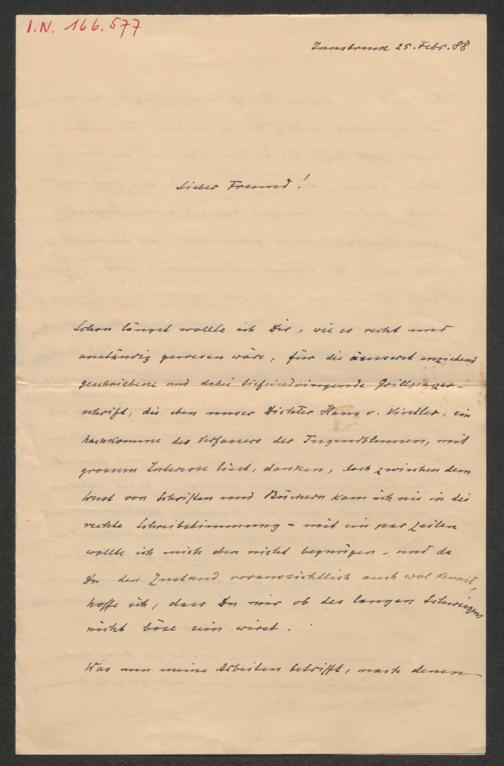 I.N. 166.577
Innsbruck 25. Febr. 88
Lieber Freund!
Schon längst wollte ich Dir, wie es recht und
anständig gewesen wäre, für die äusserst anziehend
geschriebene und dabei tiefeindringende Grillparzer-
schrift, die eben unser Dichter Hans v. Vintler, ein
nachkomme des Verfassers der Tugendblumen, mit
grossem Interesse liest, danken, doch zwischen dem
wust von Schriften und Büchern kam ich nie in die
rechte Schreibstimmung – mit ein par zeilen
wollte ich mich eben nicht begnügen – und da
Du den Zustand voraussichtlich auch wol kennst,
hoffe ich, dass Du mir ob des langen Schweigens
nicht böse sein wirst.
Was nun meine Arbeiten betrifft, nach denen